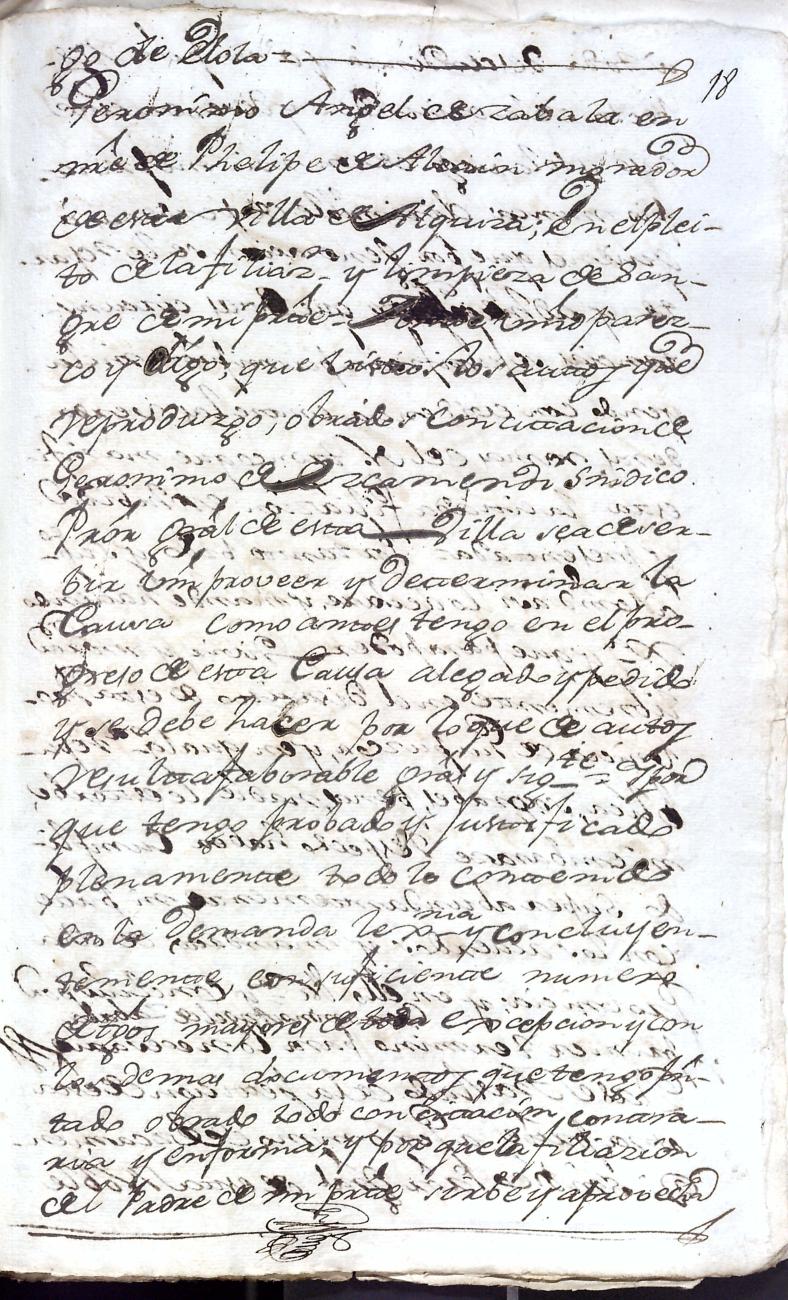 go de Elola =
18
Geronimo Angel de zabala en
nre de Phelipe de Alcain morador
de esta villa de Alquiza, en el plei-
to de la filiaz.n y limpieza de San-
gre de mi prâl ante vm parez-
co y digo, que vistos los autos que
reproduzgo, obrados con cittacion de
Geronimo de Azcamendi Sindico
Prôr grâl de esta Villa se a de ser-
bir vm proveer y Determinar la
Causa como antes tengo en el pro-
greso de esta Causa alegado y pedido
y se debe hacer por lo que de autos
resulta faborable grâl y sig.te = Y por
que tengo probado y Justificado
plenamente todo lo contenido
en la Demanda lex.ma y concluyen-
temente, con suficiente numero
de tgos mayores de toda excepcion y con
los demas documentos que tengo prn-
tado obrado todo con cittacion contra-
ria y en forma; y por que la filiazion
del Padre de mi prâl sirbe y aprovecha